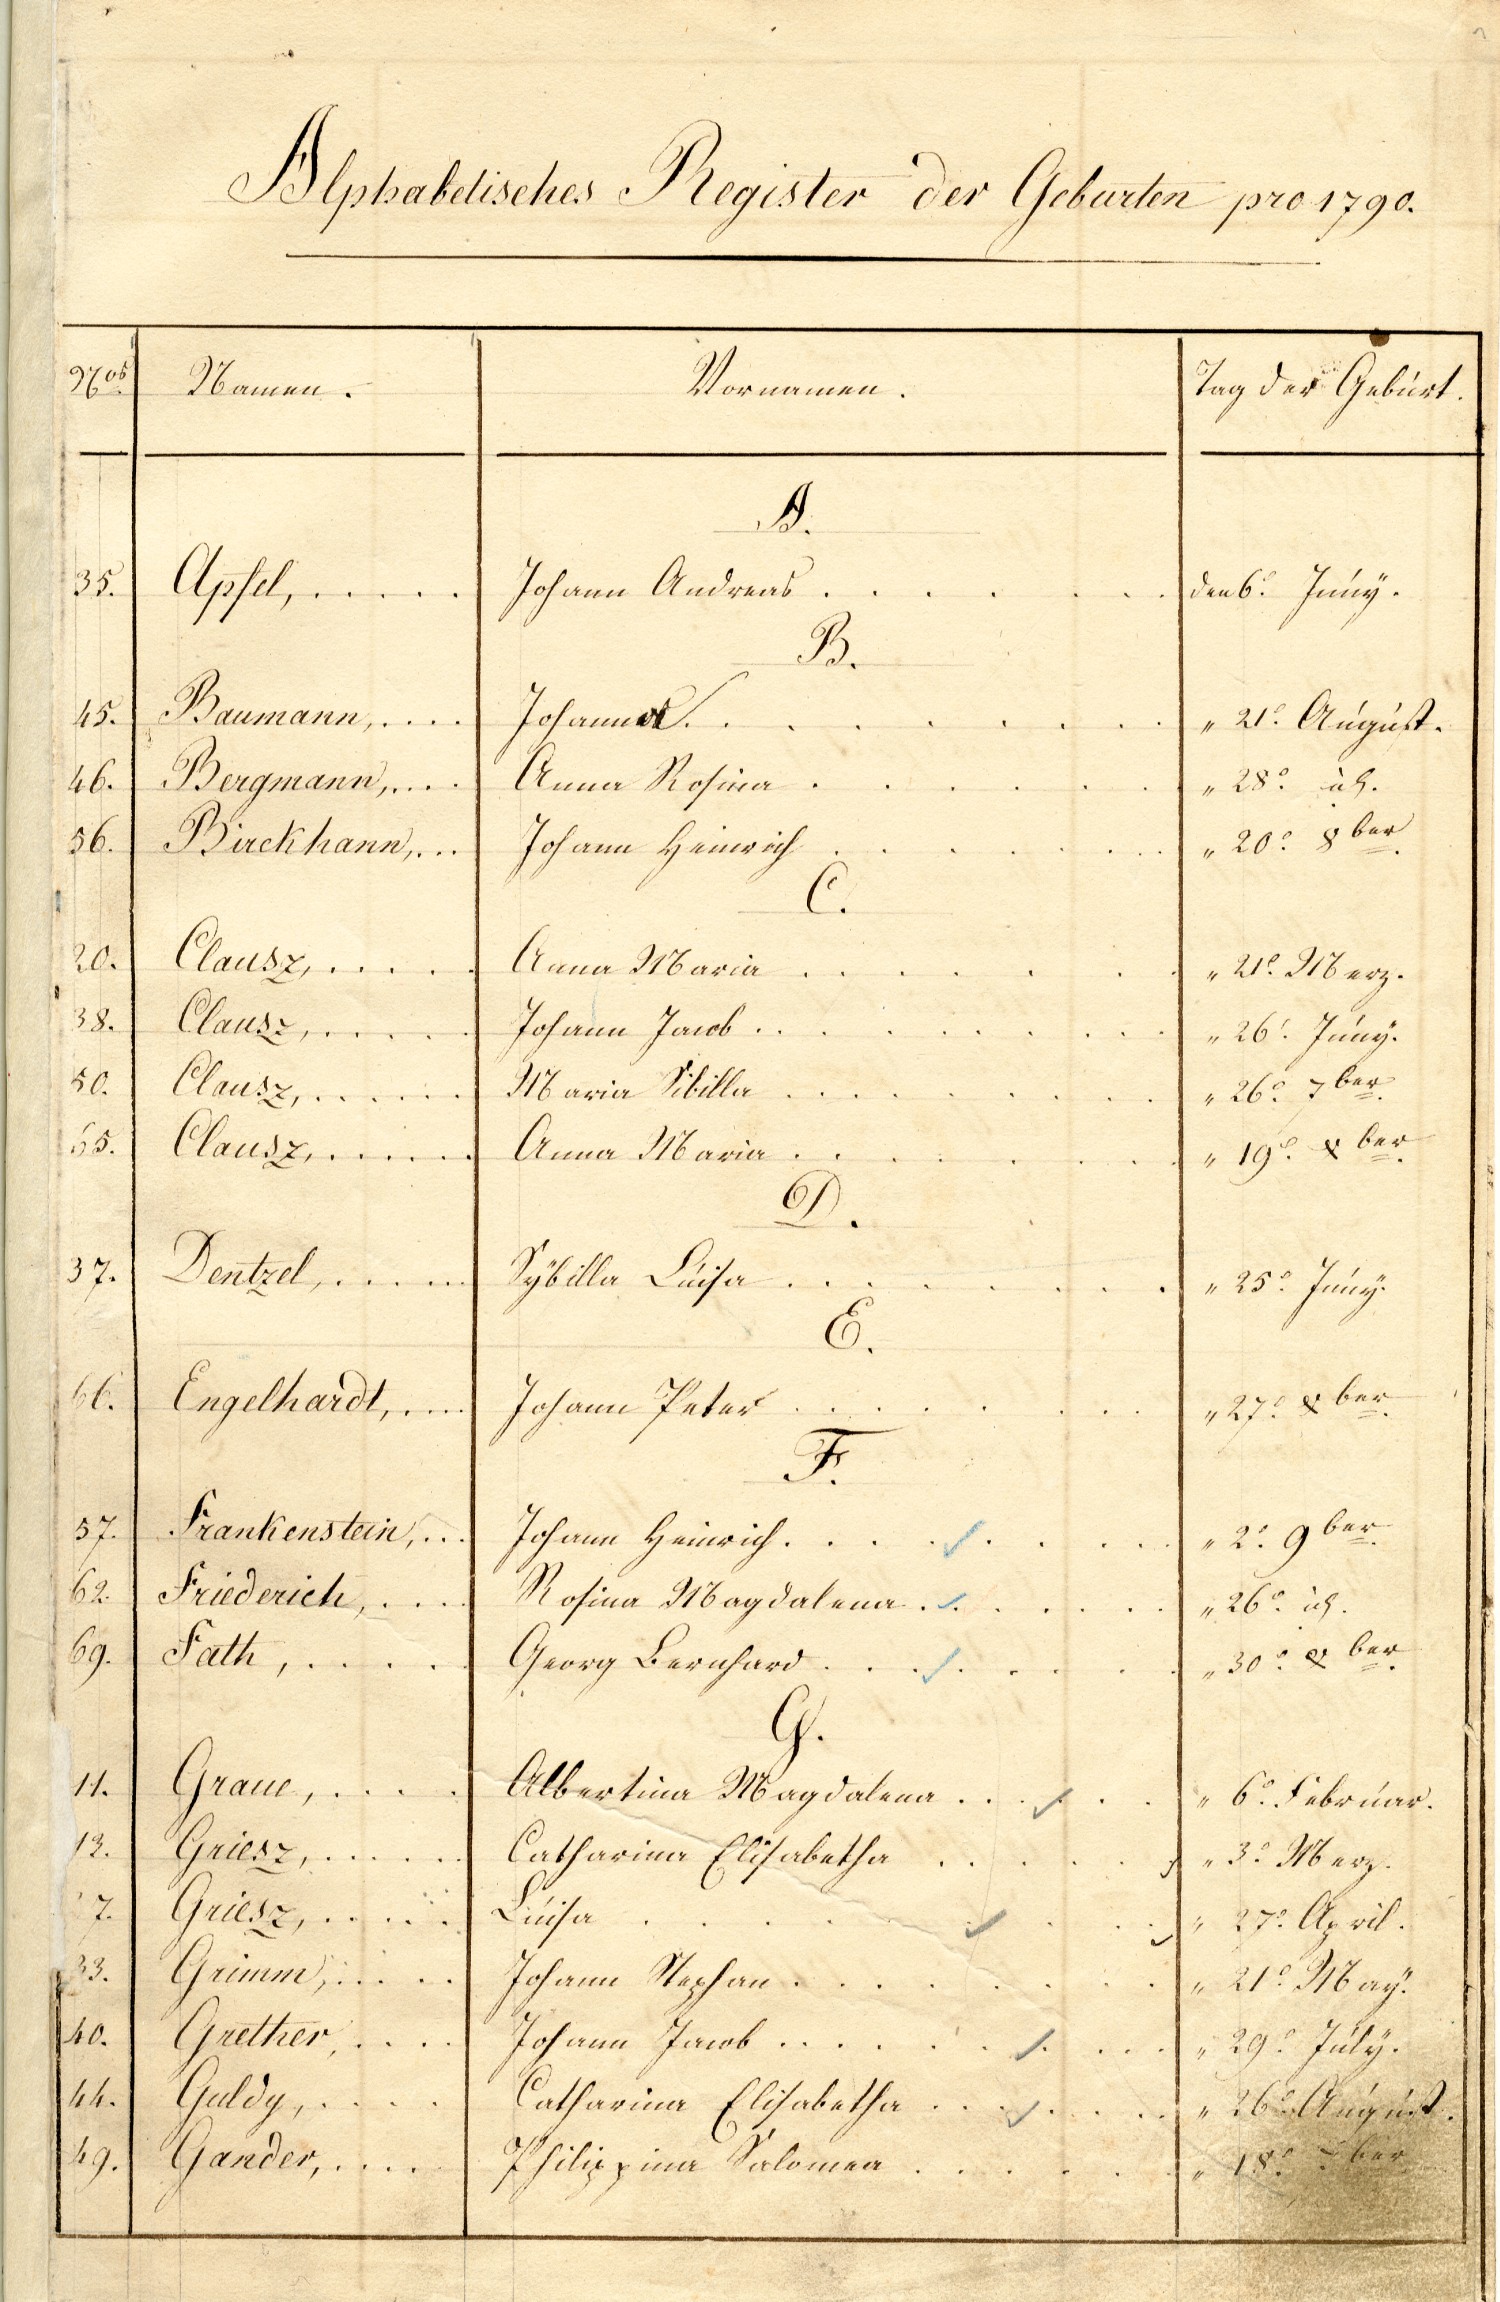 Alphabetisches Register der Geburten pro 1790.
Nos. Namen. Vornamen. Tag der Geburt.
A.
35. Apfel, Johann Andreas den 6ᵒ. Juny.
B.
45. Baumann, Johannes „ 21ᵒ. August.
46. Bergmann, Anna Rosina „ 28ᵒ. id.
56. Birckhann, Johann Heinrich „ 20ᵒ. 8ber.
C.
20. Clausz, Anna Maria „ 21ᵒ. Merz.
38. Clausz, Johann Jacob „ 26ᵒ. Juny.
50. Clausz, Maria Sibilla „ 26ᵒ. 7ber.
65. Clausz, Anna Maria „ 19ᵒ. xber.
D.
37. Dentzel, Sybilla Luisa „ 25ᵒ. Juny.
E.
66. Engelhardt, Johann Peter „ 27ᵒ. xber.
F.
57. Frankenstein, Johann Heinrich „ 2ᵒ. 9ber.
62. Friederich, Rosina Magdalena „ 26ᵒ. id.
69. Fath, Georg Bernhard „ 30ᵒ. xber.
G.
11. Graue, Albertina Magdalena „ 6ᵒ. Februar.
Griesz, Catharina Elisabetha „ 3ᵒ. Merz.
7. Griesz, Luisa „ 27ᵒ. April.
33. Grimm, Johann Stephan „ 21ᵒ. May.
40. Grether, Johann Jacob „ 29ᵒ. July.
44. Guldy, Catharina Elisabetha „ 26ᵒ. August.
49. Gander, Philippina Salomea „ 18ᵒ. ber